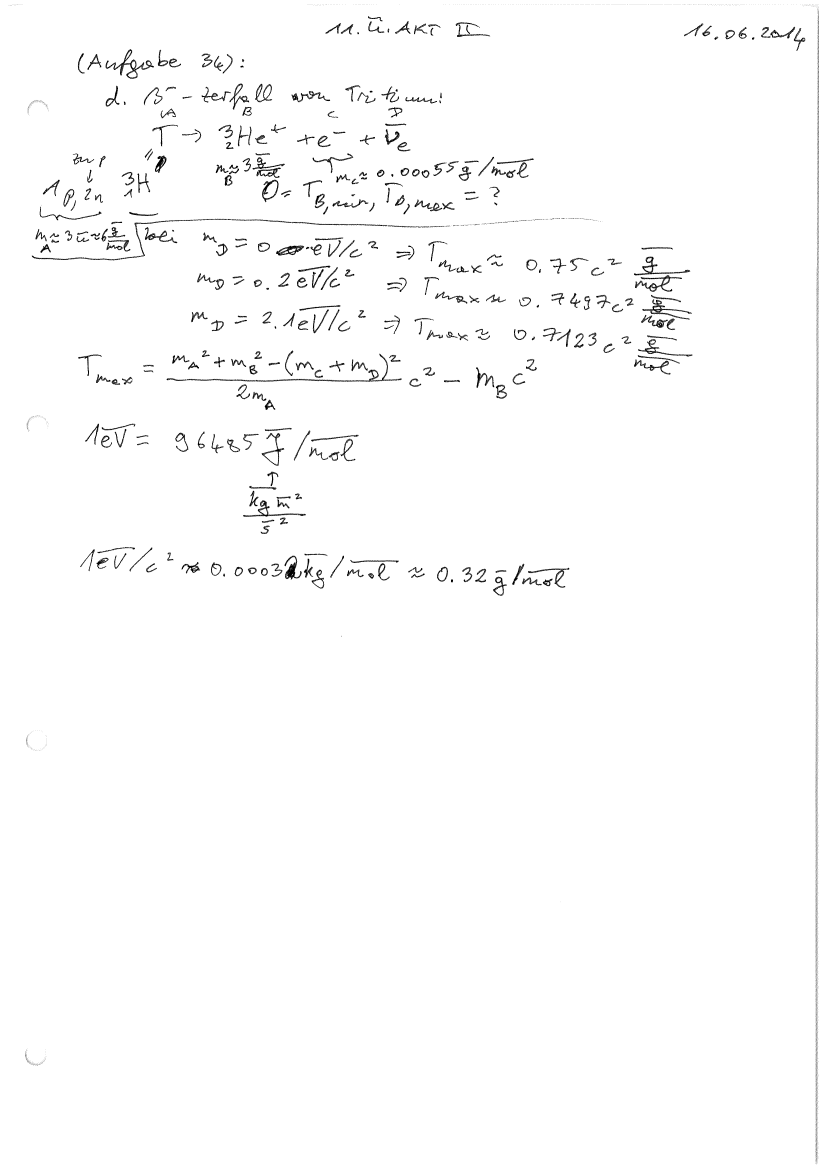 11. Ü. AKT II 16.06.2014
(Aufgabe 34):
d. β⁻-zerfall von Tritium:
A B C D
T → ³₂He⁺ + e⁻ + ν̄ₑ
zu p
↓
1p, 2n ³₁H
m_B ≈ 3 g/mol m_C ≈ 0.00055 g/mol
0 = T_B,min, T_D,max = ?
m_A ≈ 3u ≈ 6 g/mol bei m_D = 0 eV/c² ⇒ T_max ≈ 0.75c² g/mol
m_D = 0.2eV/c² ⇒ T_max ≈ 0.7497c² g/mol
m_D = 2.1eV/c² ⇒ T_max ≈ 0.7123c² g/mol
T_max = (m_A² + m_B² − (m_C + m_D)²)/(2m_A) c² − m_B c²
1eV = 96485 J/mol
↑
kg m²/s²
1eV/c² ≈ 0.00032kg/mol ≈ 0.32 g/mol